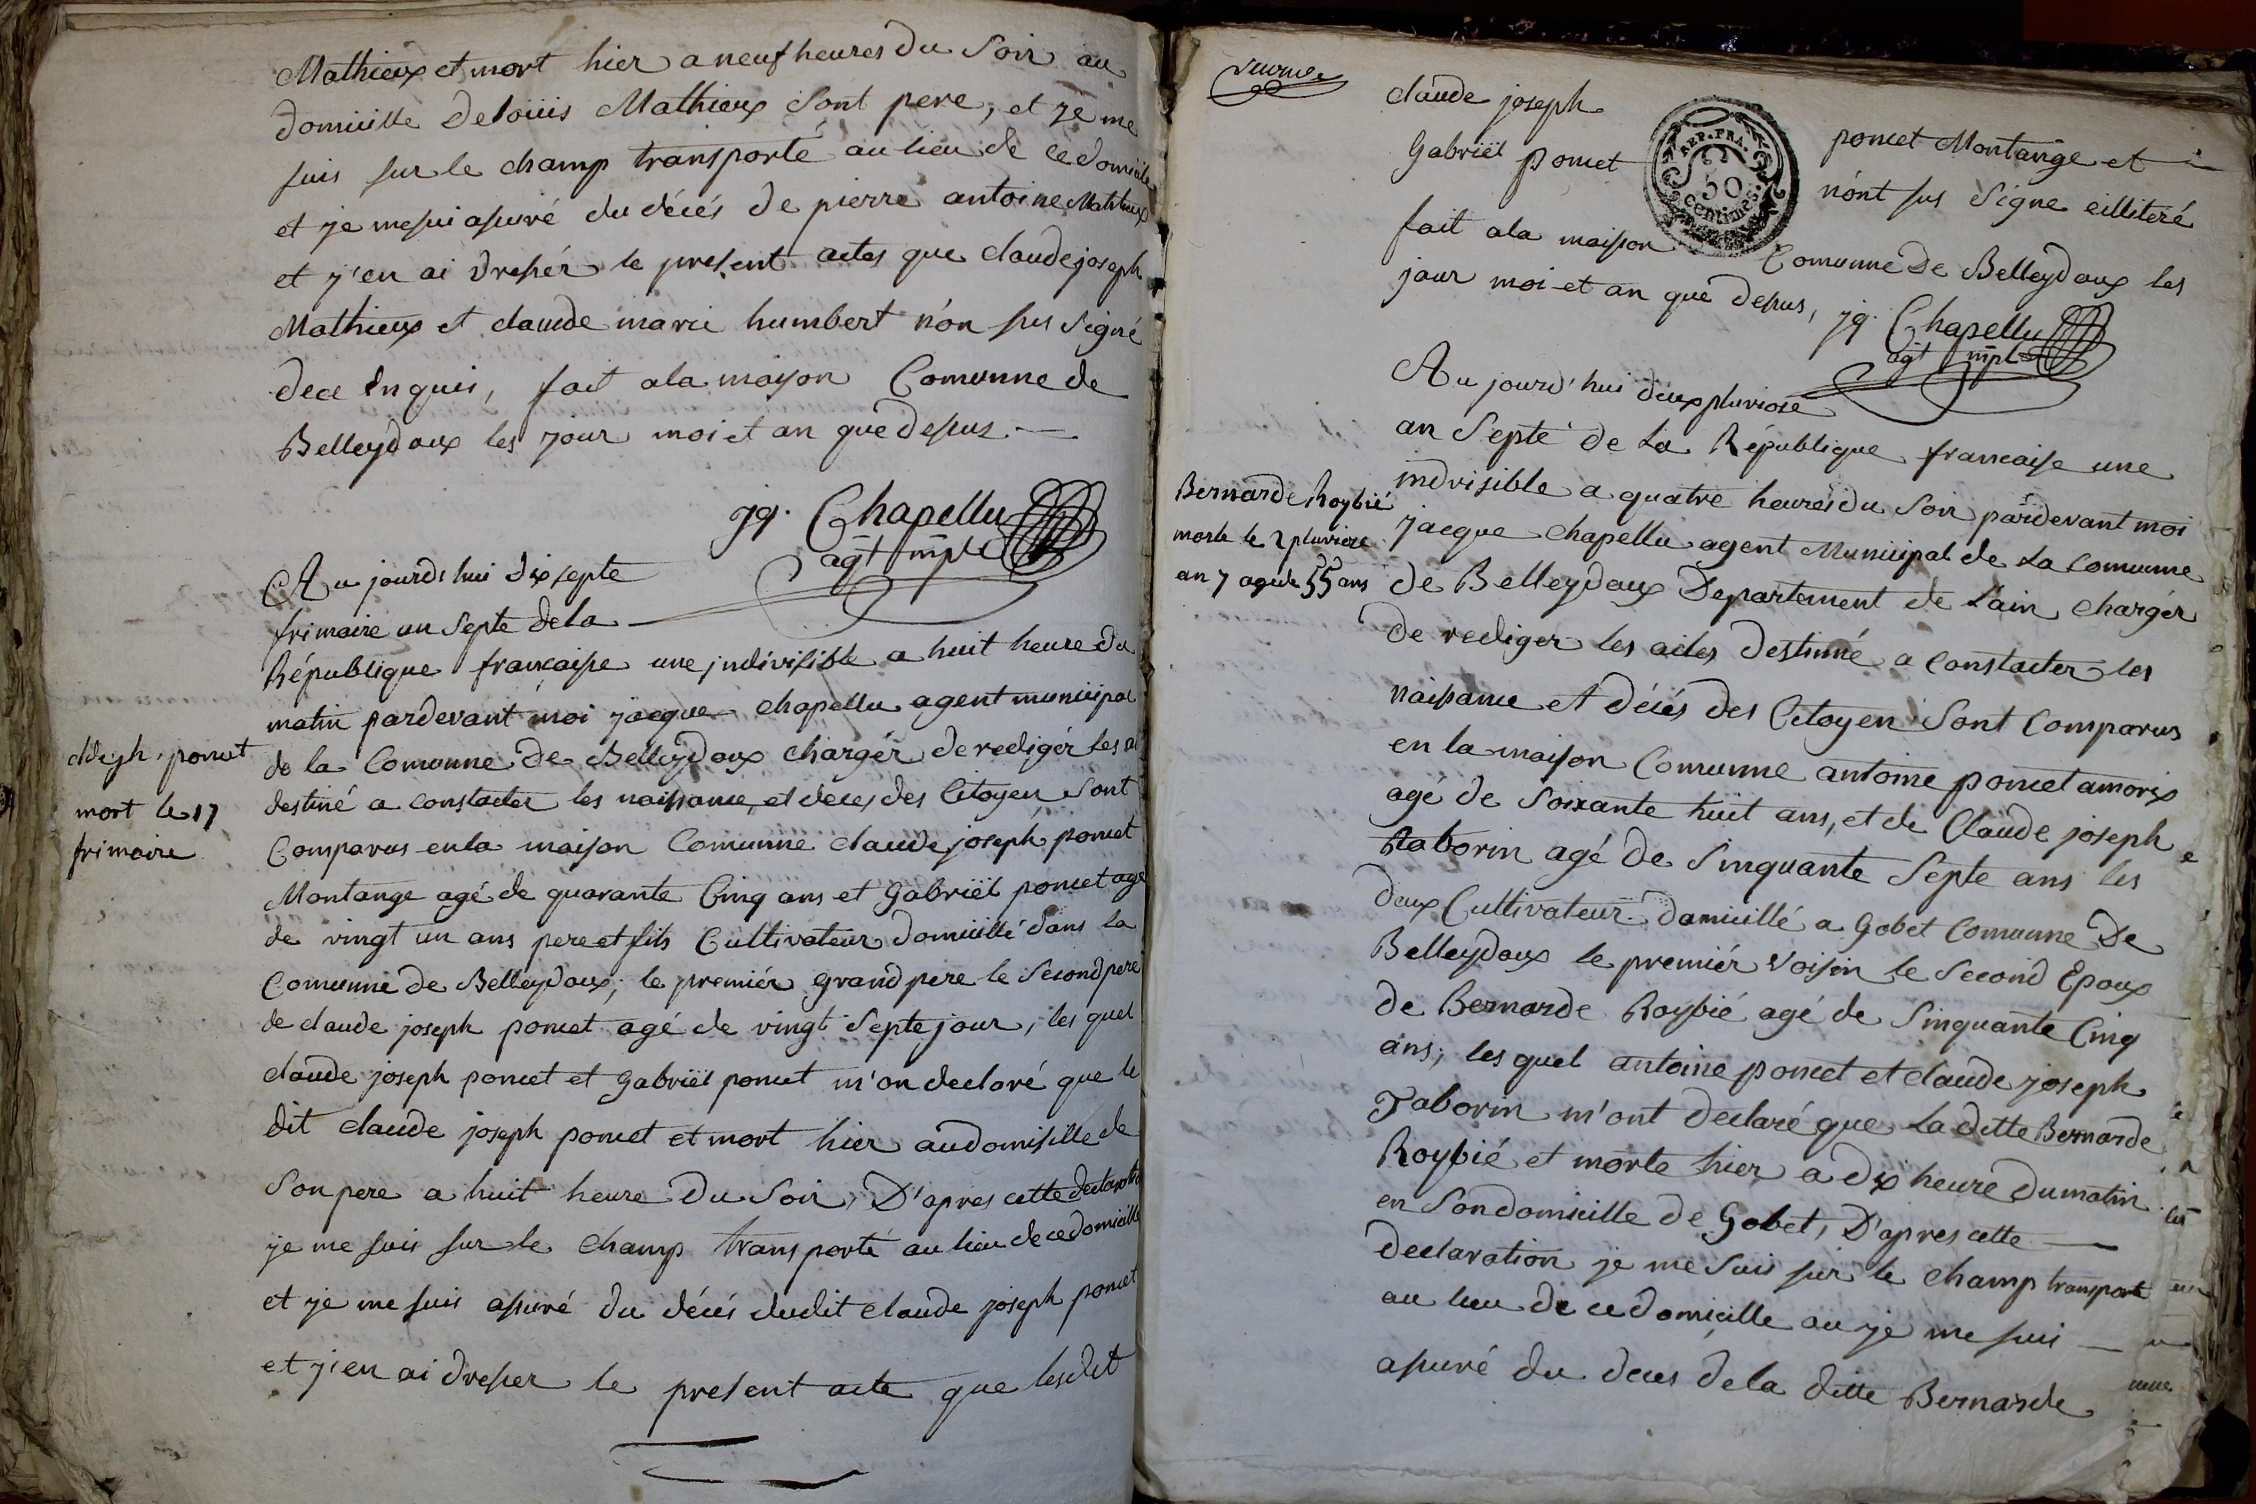 Mathieux et mort hier a neuf heures du Soir au
domicille de loüis Mathieux Sont pere, et je me
suis sur le champ transporté au lieu de ce domicile
et je me sui asuré du décés de pierre antoine Mathieux
et j'en ai dresér le present actes que claude joseph
Mathieux et claude marie humbert n'on sus signé
de ce enquis, fait a la maison Comunne de
Belleydoux les jour moi et an que desus
jq. Chapellu
agt mpl
Au jourd'hui dix septe
frimaire an Septe de la
République francaise une indivisible a huit heure du
matin pardevant moi jacque chapellu agent municipal
de la Comunne de Belleydoux chargér de redigér les a
destiné a constacter les naissance et décés des Citoyen Sont
Comparus en la maison Comunne claude joseph poncet
Montange agé de quarante Cinq ans et Gabriël poncet agé
de vingt un ans pere et fils Cultivateur domicillé dans la
Comunne de Belleydoux; le premiér grand pere le Second pere
de claude joseph poncet agé de vingt Septe jour, les quel
claude joseph poncet et Gabriël poncet m'on declaré que le
dit claude joseph poncet et mort hier au domisille de
Son pere a huit heure du Soir, D'apres cette declaration
je me suis sur le champ transporté au lieu de ce domicille
et je me suis asuré du décés dudit claude joseph poncet
et j'en ai dreser le present acte que lesdit
poncet
mort le 17
frimaire
claude joseph poncet Montange et
Gabriël poncet n'ont sus Signe illiteré
fait a la maison Comunne de Belleydoux les
jour moi et an que desus, jq. Chapellu
agt mpl
Au jourd'hui deux pluviose
an Septe de La République francaise une
indivisible a quatre heures du Soir pardevant moi
jacque chapellu agent Municipal de La Comunne
de Belleydoux Departement de L'ain chargér
de rediger les actes destinné a constacter les
naissance et décés des Citoyen Sont Comparus
en la maison Comunne antoine poncet amorix
agé de Soixante huit ans, et de Claude joseph
Taborin agé de Sinquante Septe ans les
deux Cultivateur domicillé a Gobet Comunne De
Belleydoux le premiér Voisin le Second Epoux
de Bernarde Roybié agé de Sinquante Cinq
ans; les quel antoine poncet et claude joseph
Taborin m'ont declaré que La ditte Bernarde
Roybié et morte hier a dix heure du matin
en Son domicille de Gobet, D'apres cette
declaration je me Suis sur le champ transporté
au lieu de ce domicille au je me sui
asuré du deces de la ditte Bernarde
Bernarde Roybié
morte le 2 pluviose
an 7 agé de 55 ans
REP. FRA.
50
centimes.